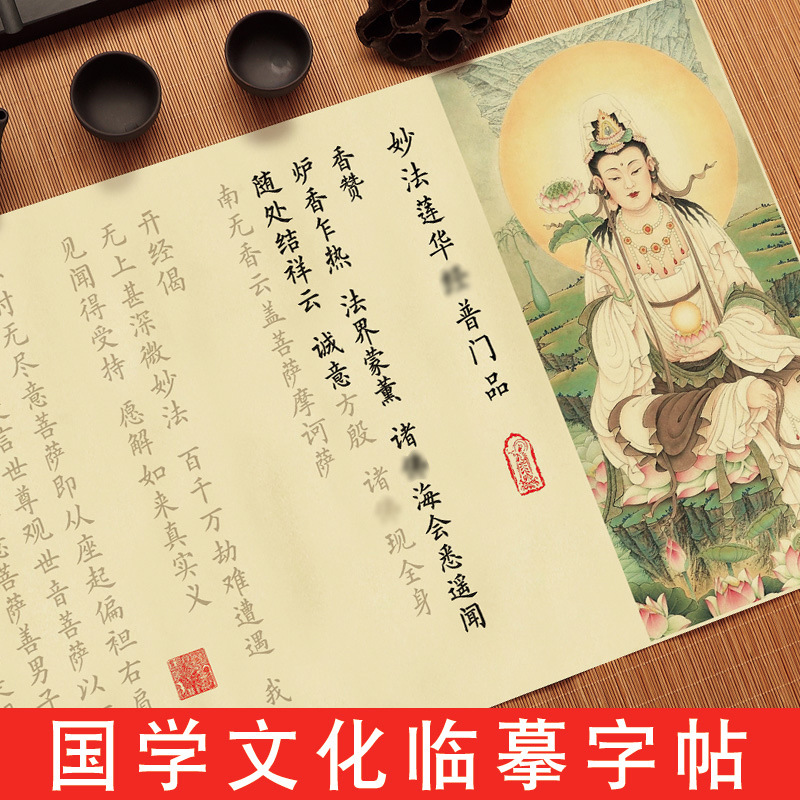 妙法莲华 普门品
香赞
炉香乍热 法界蒙薰 诸 海会悉遥闻
随处结祥云 诚意方殷 诸 现全身
南无香云盖菩萨摩诃萨
开经偈
无上甚深微妙法 百千万劫难遭遇 我
见闻得受持 愿解如来真实义
时无尽意菩萨即从座起偏袒右肩
言世尊观世音菩萨以
菩萨善男子
国学文化临摹字帖